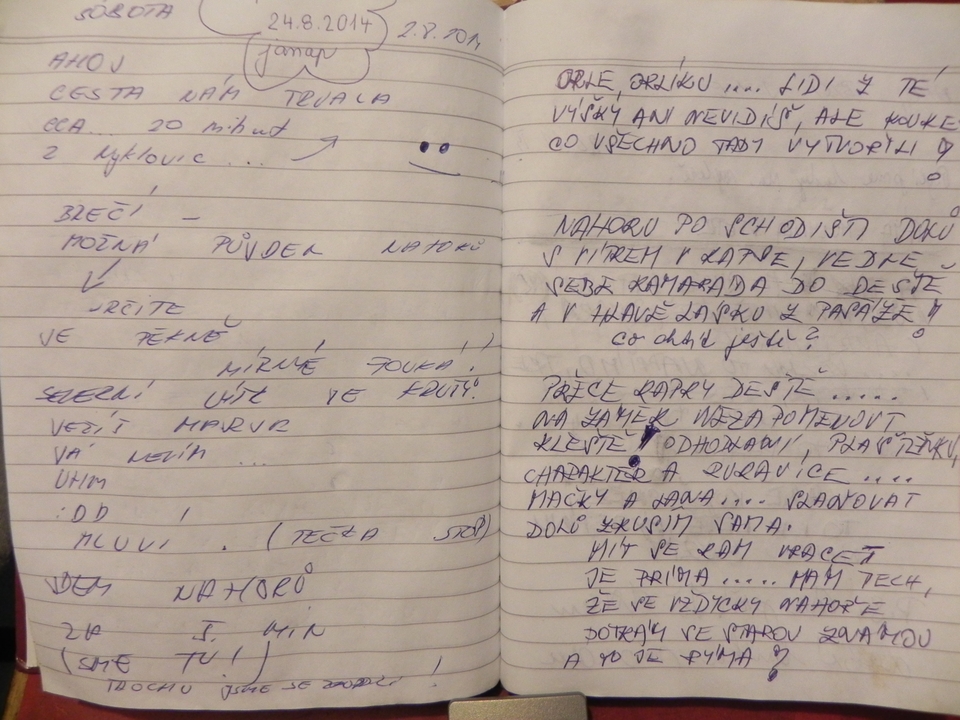 SOBOTA
24.8.2014
2.8.201
AHOJ
CESTA NÁM TRVALA
CCA... 20 minut
Z Myklovic ...
BREČÍ –
MOŽNÁ PŮJDEM NAHORŮ
URČITE
JE PĚKNĚ
MÍRNĚ FOUKÁ!
SEVERNÍ VÍTR JE KRUTÝ.
VĚTÍŠ
VÁ NEVÍM ...
UHM
:DD
MLUVÍ . (TEČKA STOP)
JDEM NAHORŮ
ZA 5. MIN
(SME TU!)
TROCHU JSME SE ZADÝCHALI !
ORLE, ORLÍKU .... LIDI Z TÉ
VÝŠKY ANI NEVIDÍŠ, ALE KOUKEJ
CO VŠECHNO TADY VYTVOŘILI ?
NAHORU PO SCHODIŠTI DOLŮ
S VÍTREM V KAPSE, VEDLE
SEBE KAMARÁDA DO DEŠTĚ
A V HLAVĚ LÁSKU Z PASÁŽE !
Co chtít ještě?
PŘECE KAPKY DEŠTĚ .....
NA ZÁMEK NEZAPOMENOUT
KLEŠTĚ ! ODHODLÁNÍ, PLÁŠTĚNKU,
CHARAKTER A RUKAVICE ....
MAČKY A LANA .... SLAŇOVAT
DOLŮ ZKUSÍM SAMA.
MÍT SE KAM VRACET
JE PRIMA ..... MÁM TECH,
ŽE SE VŽDYCKY NAHOŘE
POTKÁM SE STAROU ZNÁMOU
A TO JE RÝMA ?